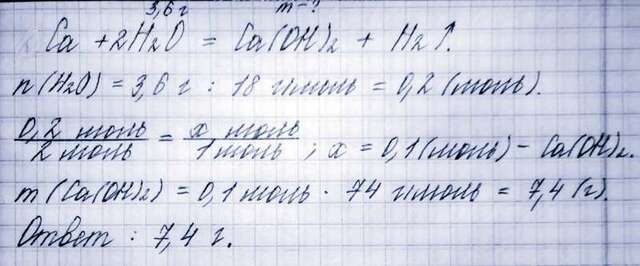 3,6 г m-?
Ca + 2H₂O = Ca(OH)₂ + H₂↑.
n(H₂O) = 3,6 г : 18 г/моль = 0,2 (моль).
0,2 моль / 2 моль = x моль / 1 моль ; x = 0,1 (моль) - Ca(OH)₂.
m(Ca(OH)₂) = 0,1 моль · 74 г/моль = 7,4 (г).
Ответ : 7,4 г.